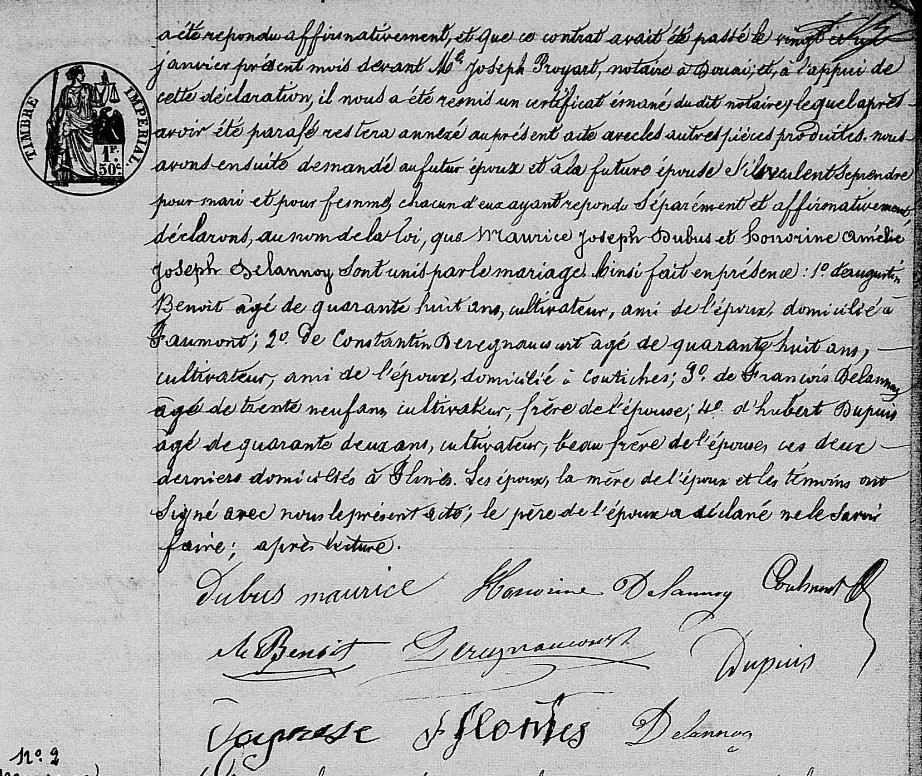 a été repondu affirmativement, et que ce contrat avait été passé le vingt
janvier présent mois devant Me. Joseph Proyart, notaire à Douai, et, à l'appui de
cette déclaration, il nous a été remis un certificat émané du dit notaire, lequel après
avoir été parafé restera annexé au présent acte avec les autres pièces produites. nous
avons ensuite demandé au futur époux et à la future épouse s'ils veulent se prendre
pour mari et pour femme, chacun d'eux ayant repondu séparément et affirmativement,
déclarons, au nom de la loi, que Maurice Joseph Dubus et honorine Amélie
Joseph Delannoy sont unis par le mariage. Ainsi fait en présence: 1o. d'augustin
Benoit âgé de quarante huit ans, cultivateur, ami de l'époux, domicilié à
Faumont; 2o. de Constantin Deregnaucourt âgé de quarante huit ans,
cultivateur, ami de l'époux, domicilié à coutiches; 3o. de François Delannoy
âgé de trente neuf ans, cultivateur, frère de l'épouse; 4o. d'hubert Dupuis
âgé de quarante deux ans, cultivateur, beau frère de l'épouse, ces deux
derniers domiciliés à Flines. Les époux, la mère de l'époux et les témoins ont
signé avec nous le présent acte; le père de l'époux a déclaré ne le savoir
faire; après lecture.
TIMBRE IMPERIAL
1F. 50c.
Dubus maurice Honorine Delannoy
Benoit Deregnaucourt Dupuis
Delannoy
No. 2